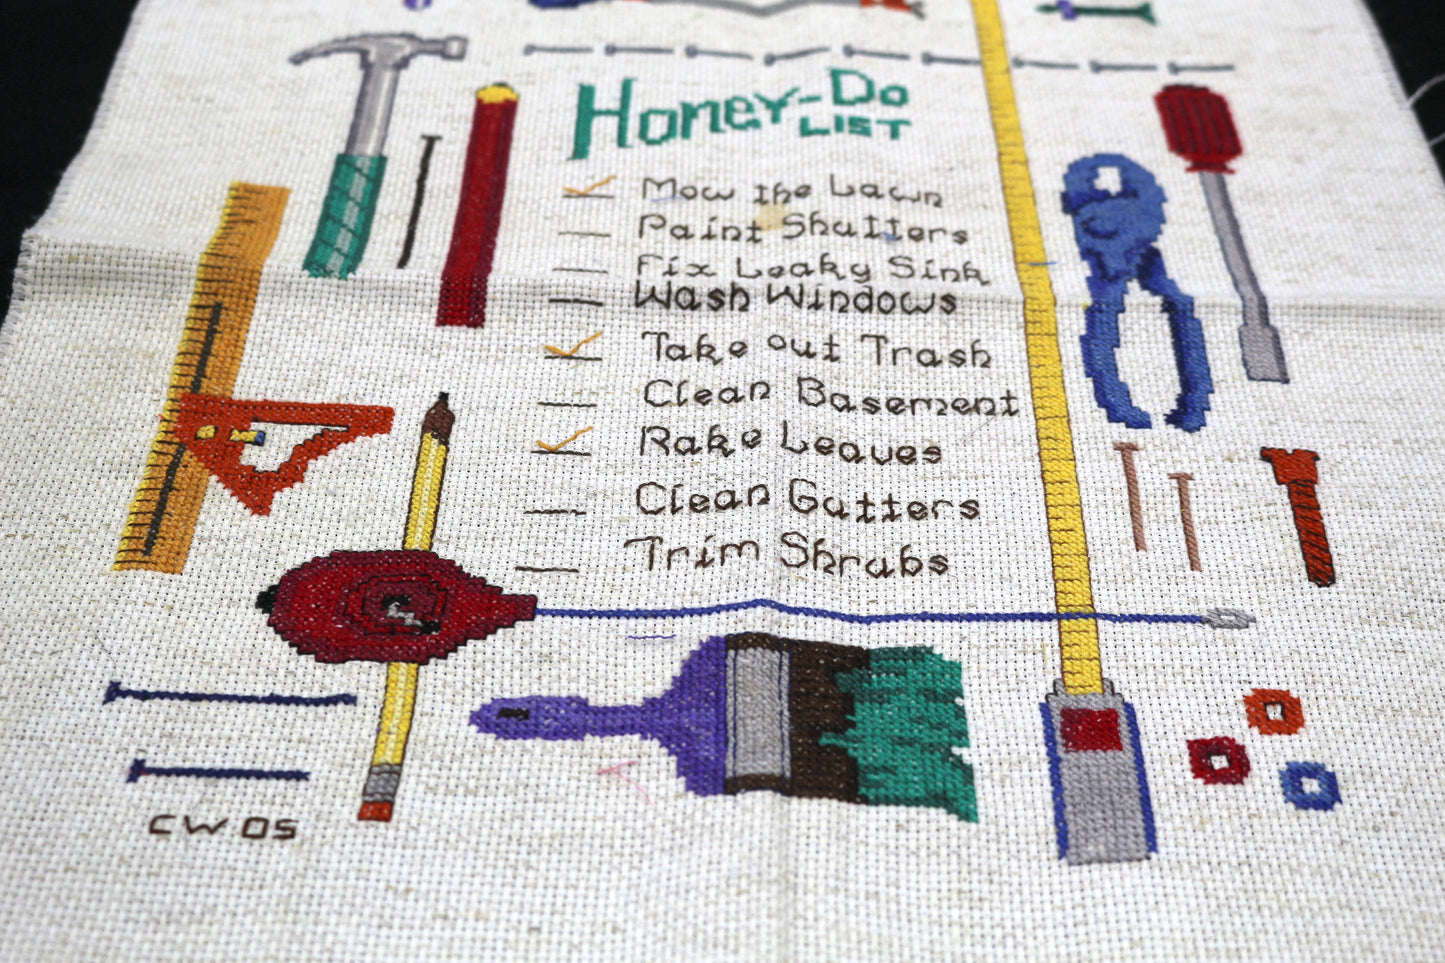 Honey-Do
LIST
Mow the Lawn
Paint Shutters
Fix Leaky Sink
Wash Windows
Take out Trash
Clean Basement
Rake Leaves
Clean Gutters
Trim Shrubs
CW 05